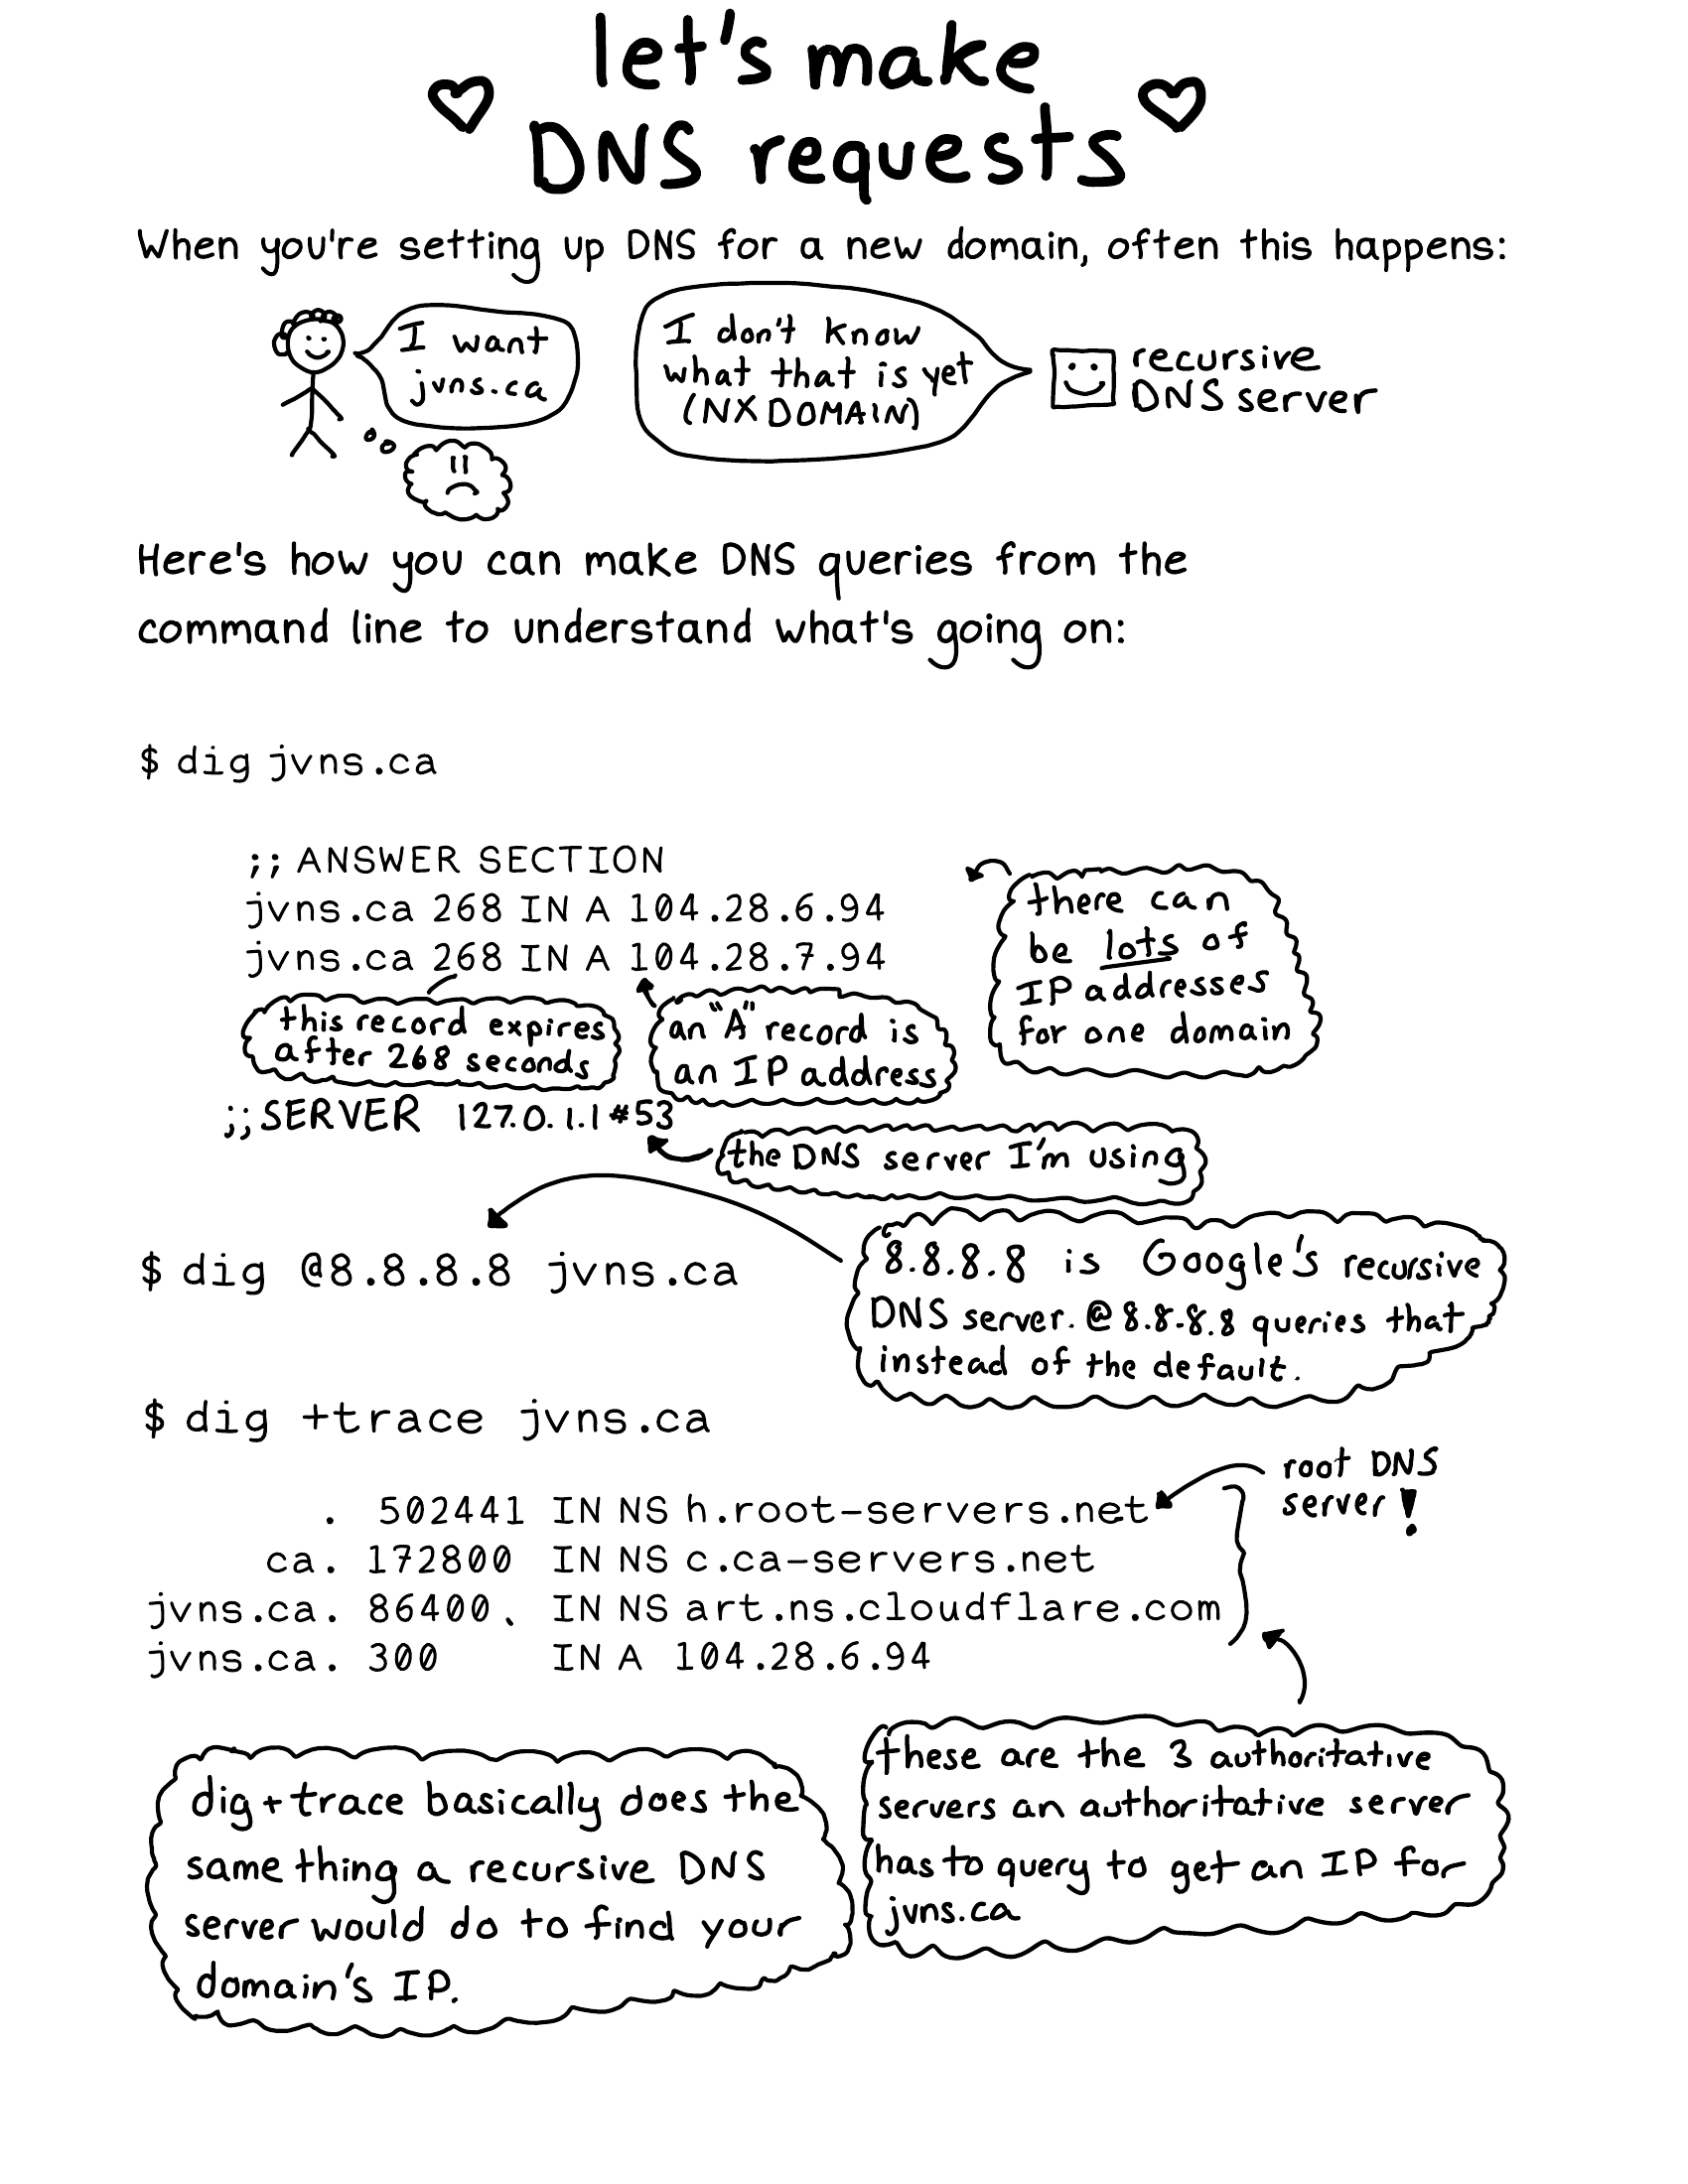 let's make
DNS requests
When you're setting up DNS for a new domain, often this happens:
I want
jvns.ca
I don't know
what that is yet
(NXDOMAIN)
recursive
DNS server
Here's how you can make DNS queries from the
command line to understand what's going on:
$ dig jvns.ca
;; ANSWER SECTION
jvns.ca 268 IN A 104.28.6.94
jvns.ca 268 IN A 104.28.7.94
there can
be lots of
IP addresses
for one domain
this record expires
after 268 seconds
an "A" record is
an IP address
;; SERVER 127.0.1.1#53
the DNS server I'm using
$ dig @8.8.8.8 jvns.ca
8.8.8.8 is Google's recursive
DNS server. @8.8.8.8 queries that
instead of the default.
$ dig +trace jvns.ca
root DNS
server!
. 502441 IN NS h.root-servers.net
ca. 172800 IN NS c.ca-servers.net
jvns.ca. 86400. IN NS art.ns.cloudflare.com
jvns.ca. 300 IN A 104.28.6.94
dig +trace basically does the
same thing a recursive DNS
server would do to find your
domain's IP.
these are the 3 authoritative
servers an authoritative server
has to query to get an IP for
jvns.ca